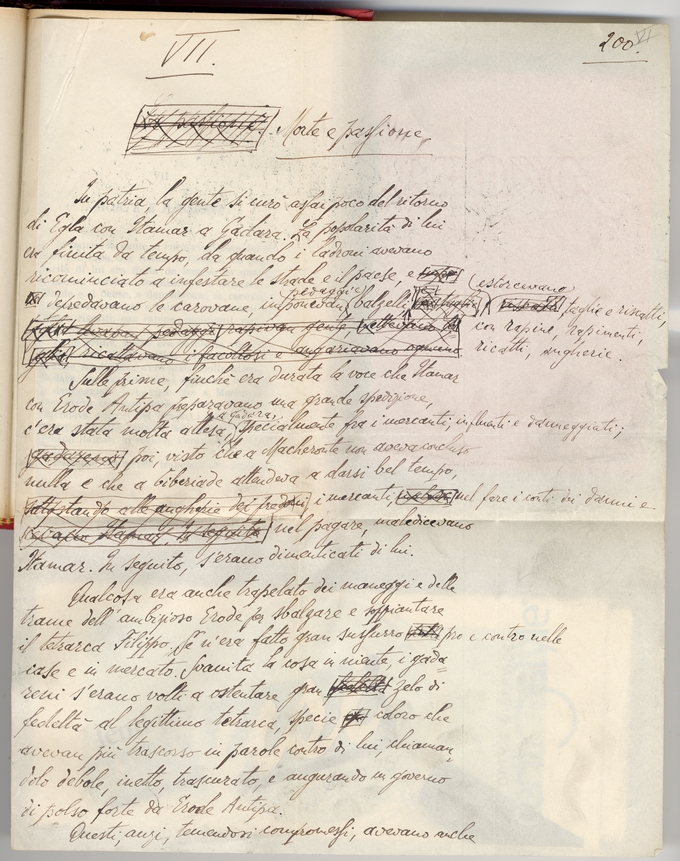 VII.
200.
VI
La passione. Morte e passione
In patria, la gente si curò assai poco del ritorno
di Egla con Itamar a Gadara. La popolarità di lui
era finita da tempo, da quando i ladroni avevano
ricominciato a infestare le strade e il paese, e
depredavano le carovane, imponevan pedaggi e balzelli, estorcevano taglie e riscatti,
con rapine, rapimenti,
ricatti, angherie.
ricattavano i facoltosi e angariavano ognuno
Sulle prime, finchè era durata la voce che Itamar
con Erode Antipa preparavano una grande spedizione,
c'era stata molta attesa, a Gadara, specialmente fra i mercanti, influenti e danneggiati;
gadareni poi, visto che a Macheronte non aveva concluso
nulla e che a Tiberiade attendeva a darsi bel tempo,
sottostando alle angherie dei predoni, i mercanti, nel fare i conti dei danni e
nel pagare, maledicevano
Itamar. In seguito, s'erano dimenticati di lui.
Qualcosa era anche trapelato dei maneggi e delle
trame dell'ambizioso Erode per sbalzare e soppiantare
il tetrarca Filippo. Se n'era fatto gran sussurro pro e contro nelle
case e in mercato. Svanita la cosa in niente, i gada=
reni s'erano volti a ostentare gran zelo di
fedeltà al legittimo tetrarca, specie coloro che
avevan più trascorso in parole contro di lui, chiaman=
dolo debole, inetto, trascurato, e augurando un governo
di polso forte da Erode Antipa.
Questi, anzi, temendosi compromessi, avevano anche